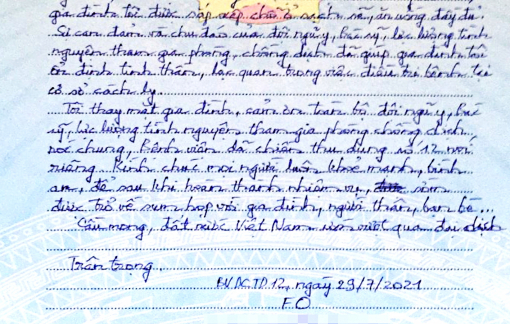 gia đình tôi được sắp xếp chỗ ở sạch sẽ, ăn uống đầy đủ.
Sự can đảm và chu đáo của đội ngũ y, bác sỹ, lực lượng tình
nguyện tham gia phòng, chống dịch đã giúp gia đình tôi
ổn định tinh thần, lạc quan trong việc điều trị bệnh tại
cơ sở cách ly.
Tôi thay mặt gia đình, cảm ơn toàn bộ đội ngũ y, bác
sỹ, lực lượng tình nguyện tham gia phòng chống dịch
nói chung, bệnh viện dã chiến thu dung số 12 nói
riêng. Kính chúc mọi người luôn khoẻ mạnh, bình
an, để sau khi hoàn thành nhiệm vụ, sớm
được trở về sum họp với gia đình, người thân, bạn bè...
Cầu mong, đất nước Việt Nam sớm vượt qua đại dịch
Trân trọng.
BV.DC.TD.12, ngày 29/7/2021
FO